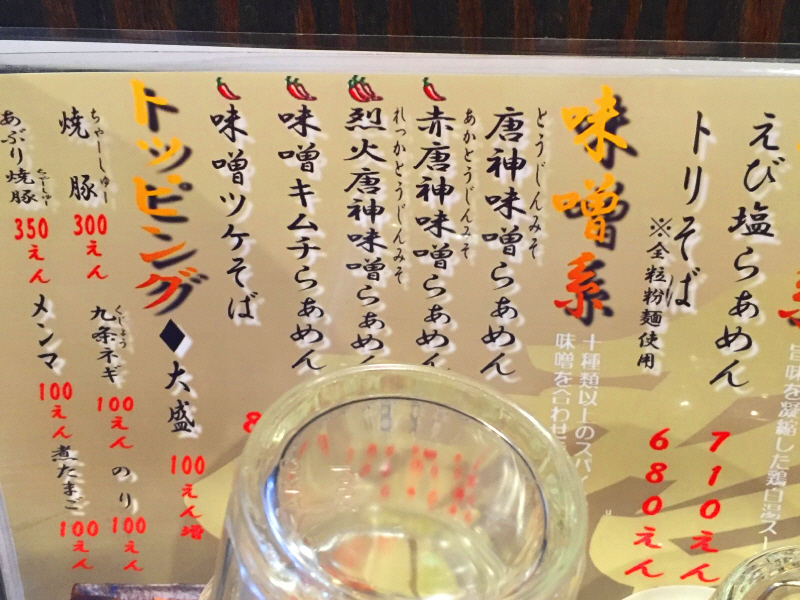 えび塩らぁめん
710えん
トリそば
※全粒粉麺使用
680えん
旨味を凝縮した鶏白湯スー
味噌系
十種類以上のスパ
味噌を合わせ
とうじんみそ
唐神味噌らぁめん
あかとうじんみそ
赤唐神味噌らぁめん
れっかとうじんみそ
烈火唐神味噌らぁめん
味噌キムチらぁめん
味噌ツケそば
8
トッピング
◆大盛
100えん増
ちゃーしゅー
焼豚
300えん
くじょう
九条ネギ
100えん
のり
100えん
あぶり焼豚
350えん
メンマ
100えん
煮たまご
100えん